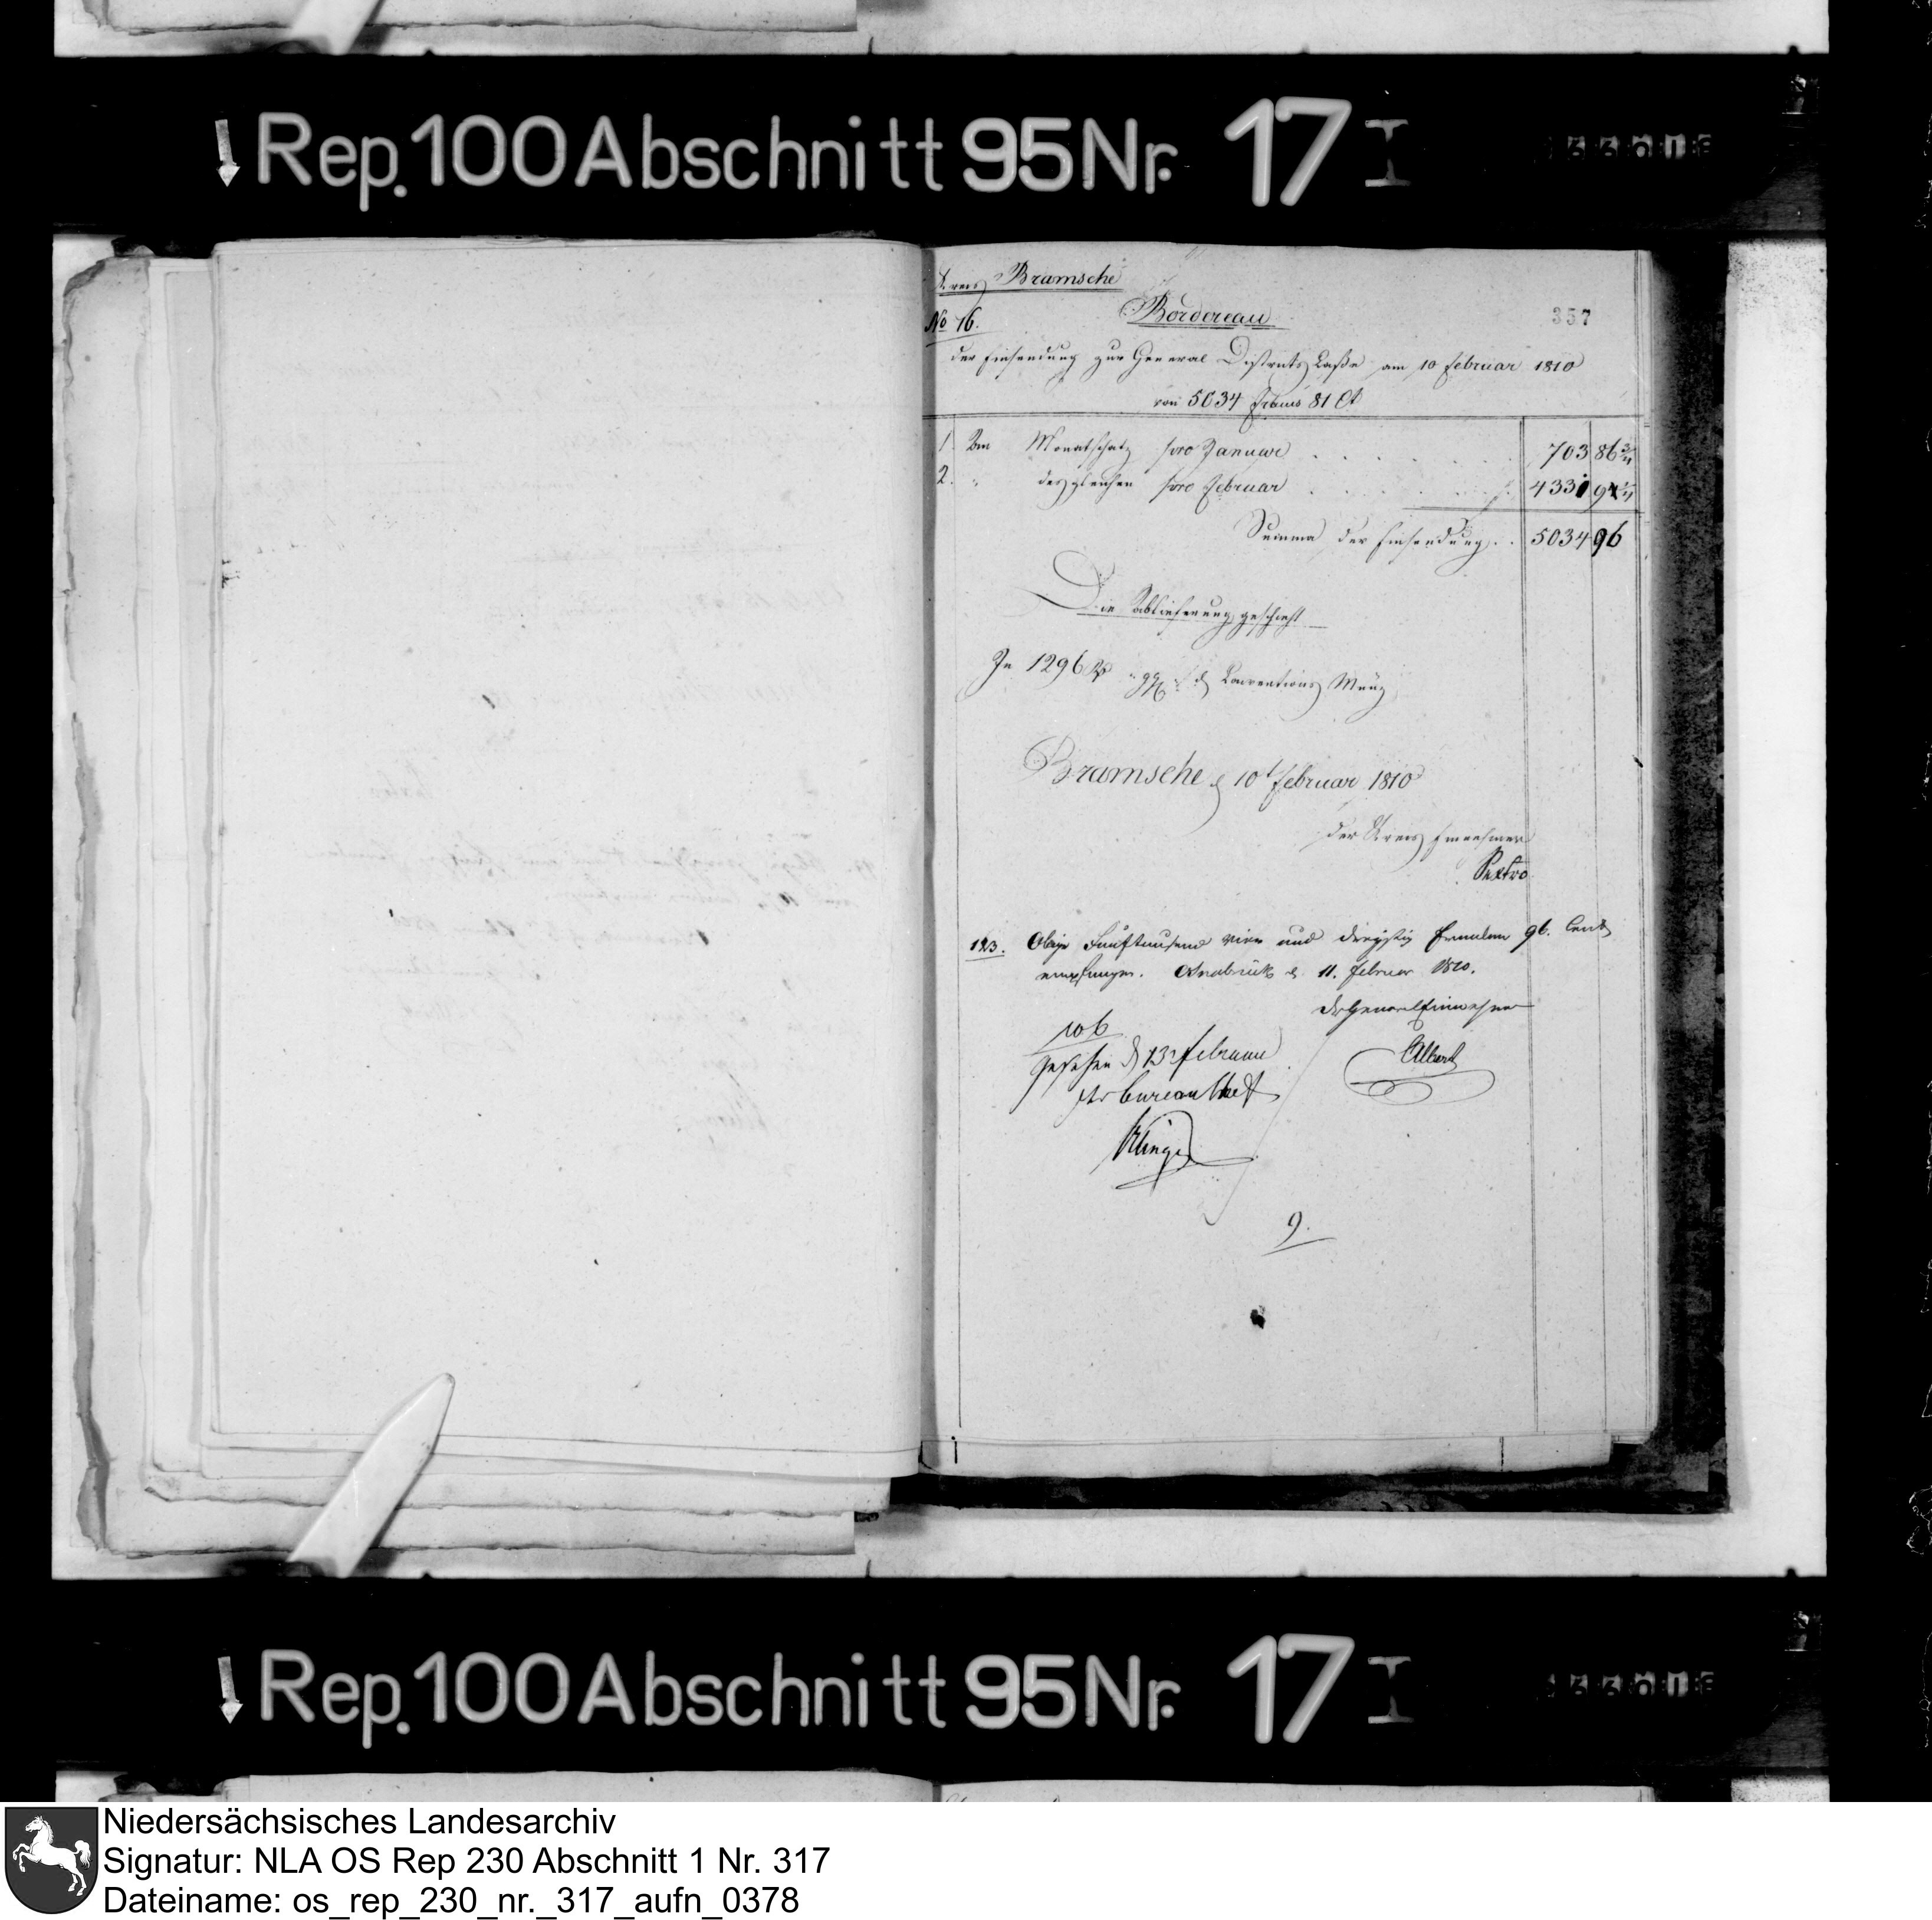 Rep. 100 Abschnitt 95 Nr. 17 I
Kreis Bramsche
No 16. Bordereau 357
der Einsendung zur General Districts Casse am 10 Februar 1810
von 5034 Francs 81 Ct
1. Am Monatschatz pro Januar 703 86 3/4
2. " desgleichen pro Februar 4331
Summa der Einsendung 5034 96
Die Ablieferung geschieht
In 1296 Rt " ggr " d Conventions Münz
Bramsche d 10t Februar 1810
Der Kreis Einnehmer
123. Obige Fünftausend vier und dreyssig Franken 96. Cent
empfangen. Osnabrück d. 11. Februar 1810.
Der General Einnehmer
106
Albert
gesehen d 13 Februar
der Bureau Chef
Klinge
9.
Rep. 100 Abschnitt 95 Nr. 17 I
Niedersächsisches Landesarchiv
Signatur: NLA OS Rep 230 Abschnitt 1 Nr. 317
Dateiname: os_rep_230_nr._317_aufn_0378